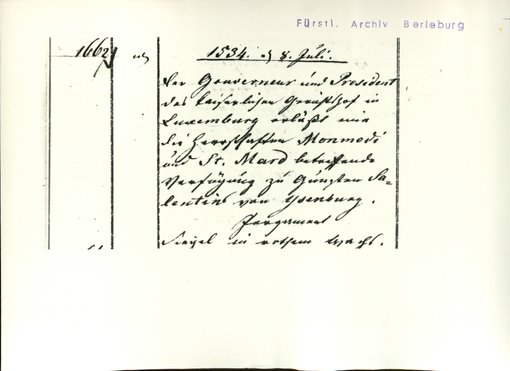 Fürstl. Archiv Berleburg
1662
1534. d 8. Juli.
Der Gouverneur und President
des kaiserlichen Gerichtshof in
Luxemburg erläßt eine
die Herrschaften Monmedi
und St. Mard betreffende
Verfügung zu Gunsten Sa-
lentins von Ysenburg.
Pergament
Siegel in rothem Wachs.